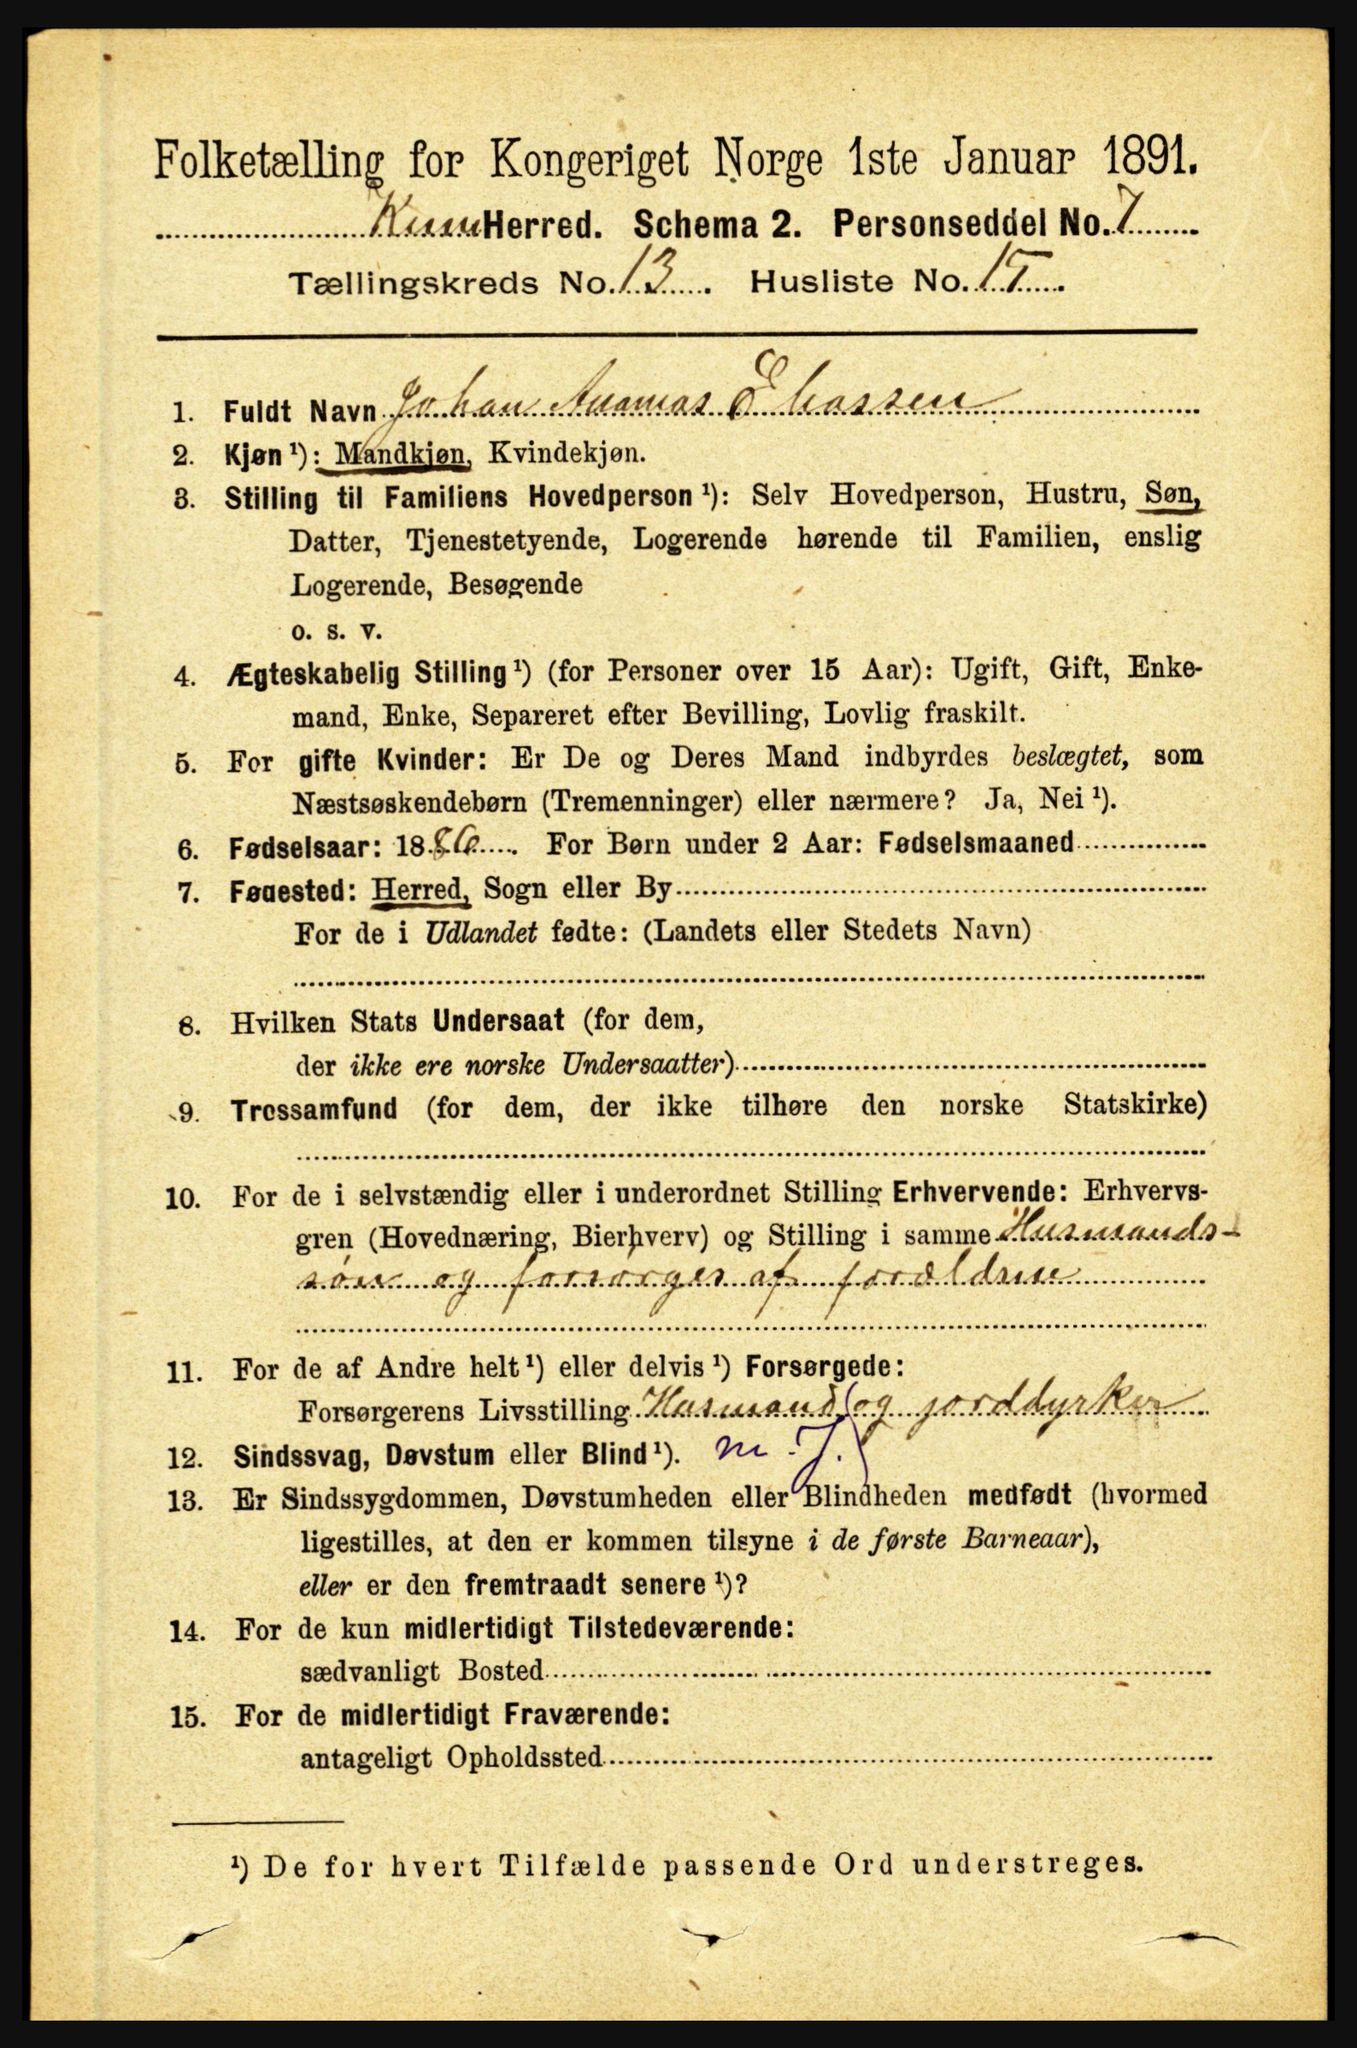 Folketælling for Kongeriget Norge 1ste Januar 1891.
Herred. Schema 2. Personseddel No. 7
Tællingskreds No. 13. Husliste No. 15.
1. Fuldt Navn Johan Eliassen
2. Kjøn ¹): Mandkjøn, Kvindekjøn.
3. Stilling til Familiens Hovedperson ¹): Selv Hovedperson, Hustru, Søn,
Datter, Tjenestetyende, Logerende hørende til Familien, enslig
Logerende, Besøgende
o. s. v.
4. Ægteskabelig Stilling ¹) (for Personer over 15 Aar): Ugift, Gift, Enke-
mand, Enke, Separeret efter Bevilling, Lovlig fraskilt.
5. For gifte Kvinder: Er De og Deres Mand indbyrdes beslægtet, som
Næstsøskendebørn (Tremenninger) eller nærmere? Ja, Nei ¹).
6. Fødselsaar: 1886. For Børn under 2 Aar: Fødselsmaaned
7. Fødested: Herred, Sogn eller By
For de i Udlandet fødte: (Landets eller Stedets Navn)
8. Hvilken Stats Undersaat (for dem,
der ikke ere norske Undersaatter)
9. Trossamfund (for dem, der ikke tilhøre den norske Statskirke)
10. For de i selvstændig eller i underordnet Stilling Erhvervende: Erhvervs-
gren (Hovednæring, Bierhverv) og Stilling i samme Husmands-
søn og forsørges af forældrene
11. For de af Andre helt ¹) eller delvis ¹) Forsørgede:
Forsørgerens Livsstilling Husmand og jorddyrker
12. Sindssvag, Døvstum eller Blind ¹). m. J.
13. Er Sindssygdommen, Døvstumheden eller Blindheden medfødt (hvormed
ligestilles, at den er kommen tilsyne i de første Barneaar),
eller er den fremtraadt senere ¹)?
14. For de kun midlertidigt Tilstedeværende:
sædvanligt Bosted
15. For de midlertidigt Fraværende:
antageligt Opholdssted
¹) De for hvert Tilfælde passende Ord understreges.